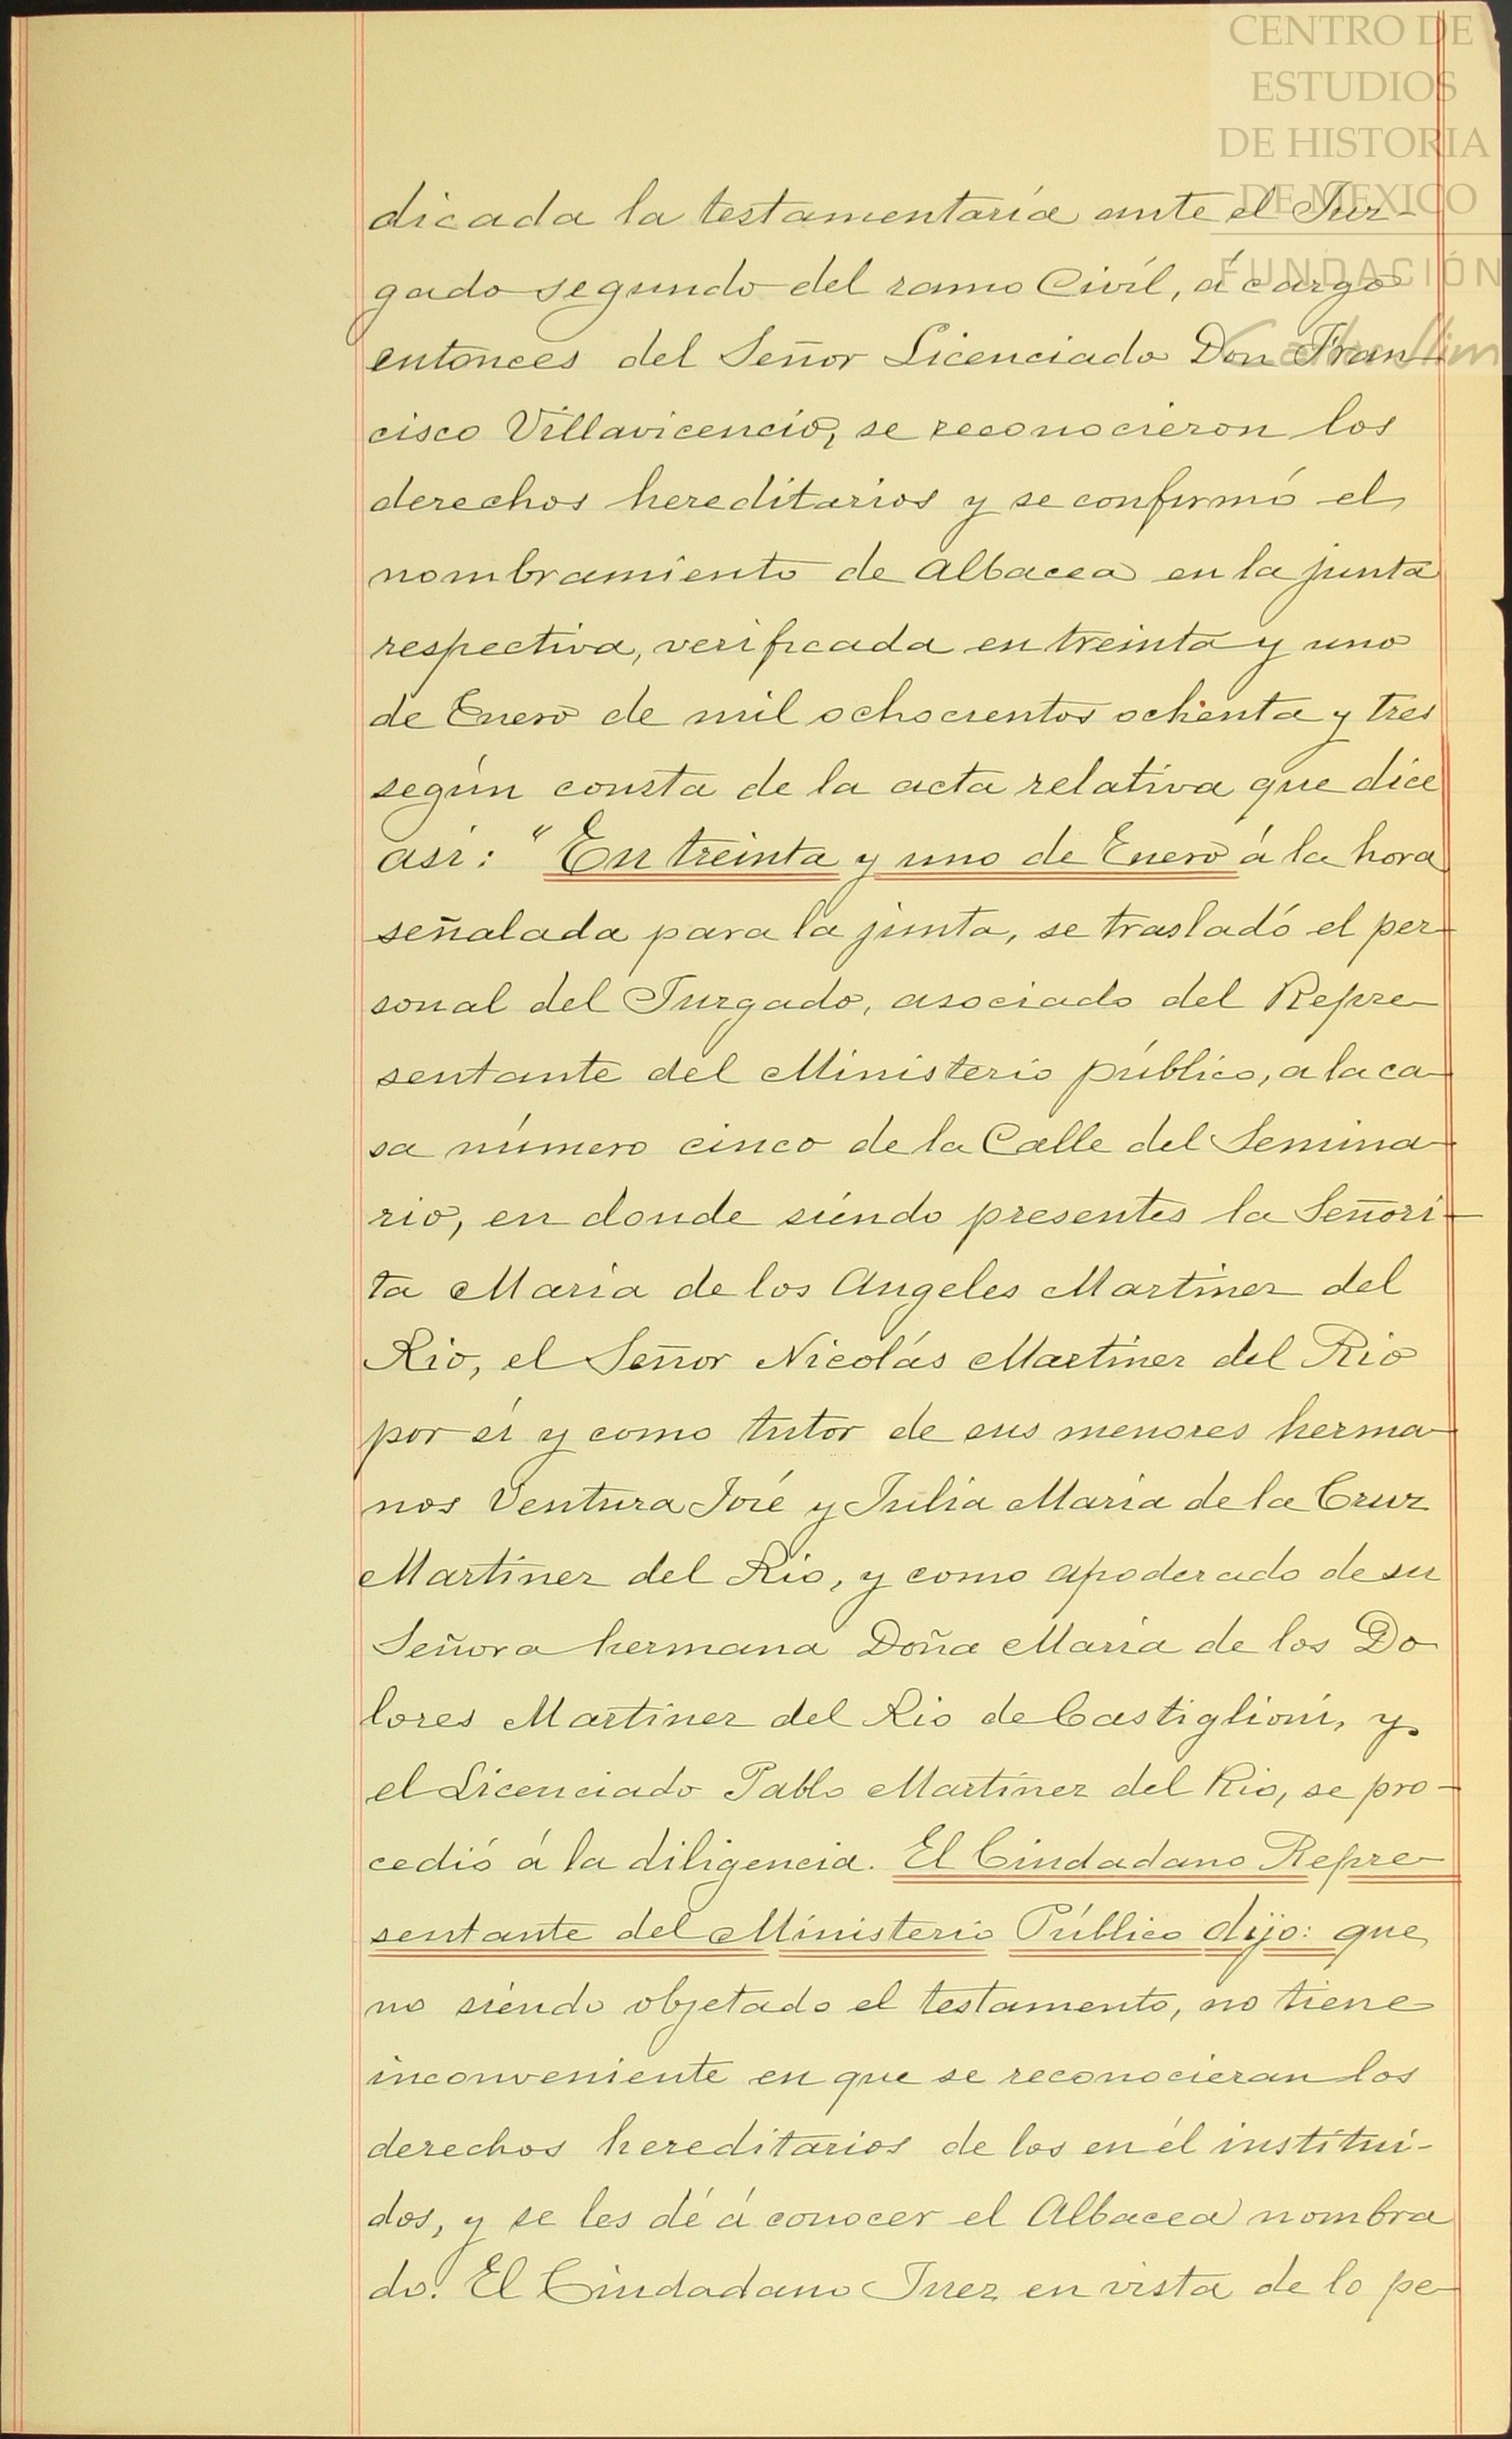 CENTRO DE
ESTUDIOS
DE HISTORIA
DE MEXICO
FUNDACIÓN
Carlos Slim
dicada la testamentaría ante el Juz-
gado segundo del ramo Civíl, á cargo
entonces del Señor Licenciado Don Fran-
cisco Villavicencio, se reconocieron los
derechos hereditarios y se confirmó el
nombramiento de Albacea en la junta
respectiva, verificada en treinta y uno
de Enero de mil ochocientos ochenta y tres
según consta de la acta relativa que dice
así: "En treinta y uno de Enero á la hora
señalada para la junta, se trasladó el per-
sonal del Juzgado, asociado del Repre-
sentante del Ministerio público, a la ca-
sa número cinco de la Calle del Semina-
rio, en donde siendo presentes la Señori-
ta María de los Angeles Martinez del
Rio, el Señor Nicolás Martinez del Rio
por sí y como tutor de sus menores herma-
nos Ventura José y Julia María de la Cruz
Martinez del Rio, y como apoderado de su
Señora hermana Doña María de los Do
lores Martinez del Rio de Castiglioni, y
el Licenciado Pablo Martinez del Rio, se pro-
cedió á la diligencia. El Ciudadano Repre-
sentante del Ministerio Público dijo: que
no siendo objetado el testamento, no tiene
inconveniente en que se reconocieran los
derechos hereditarios de los en él institui-
dos, y se les dé á conocer el Albacea nombra
do. El Ciudadano Juez en vista de lo pe-